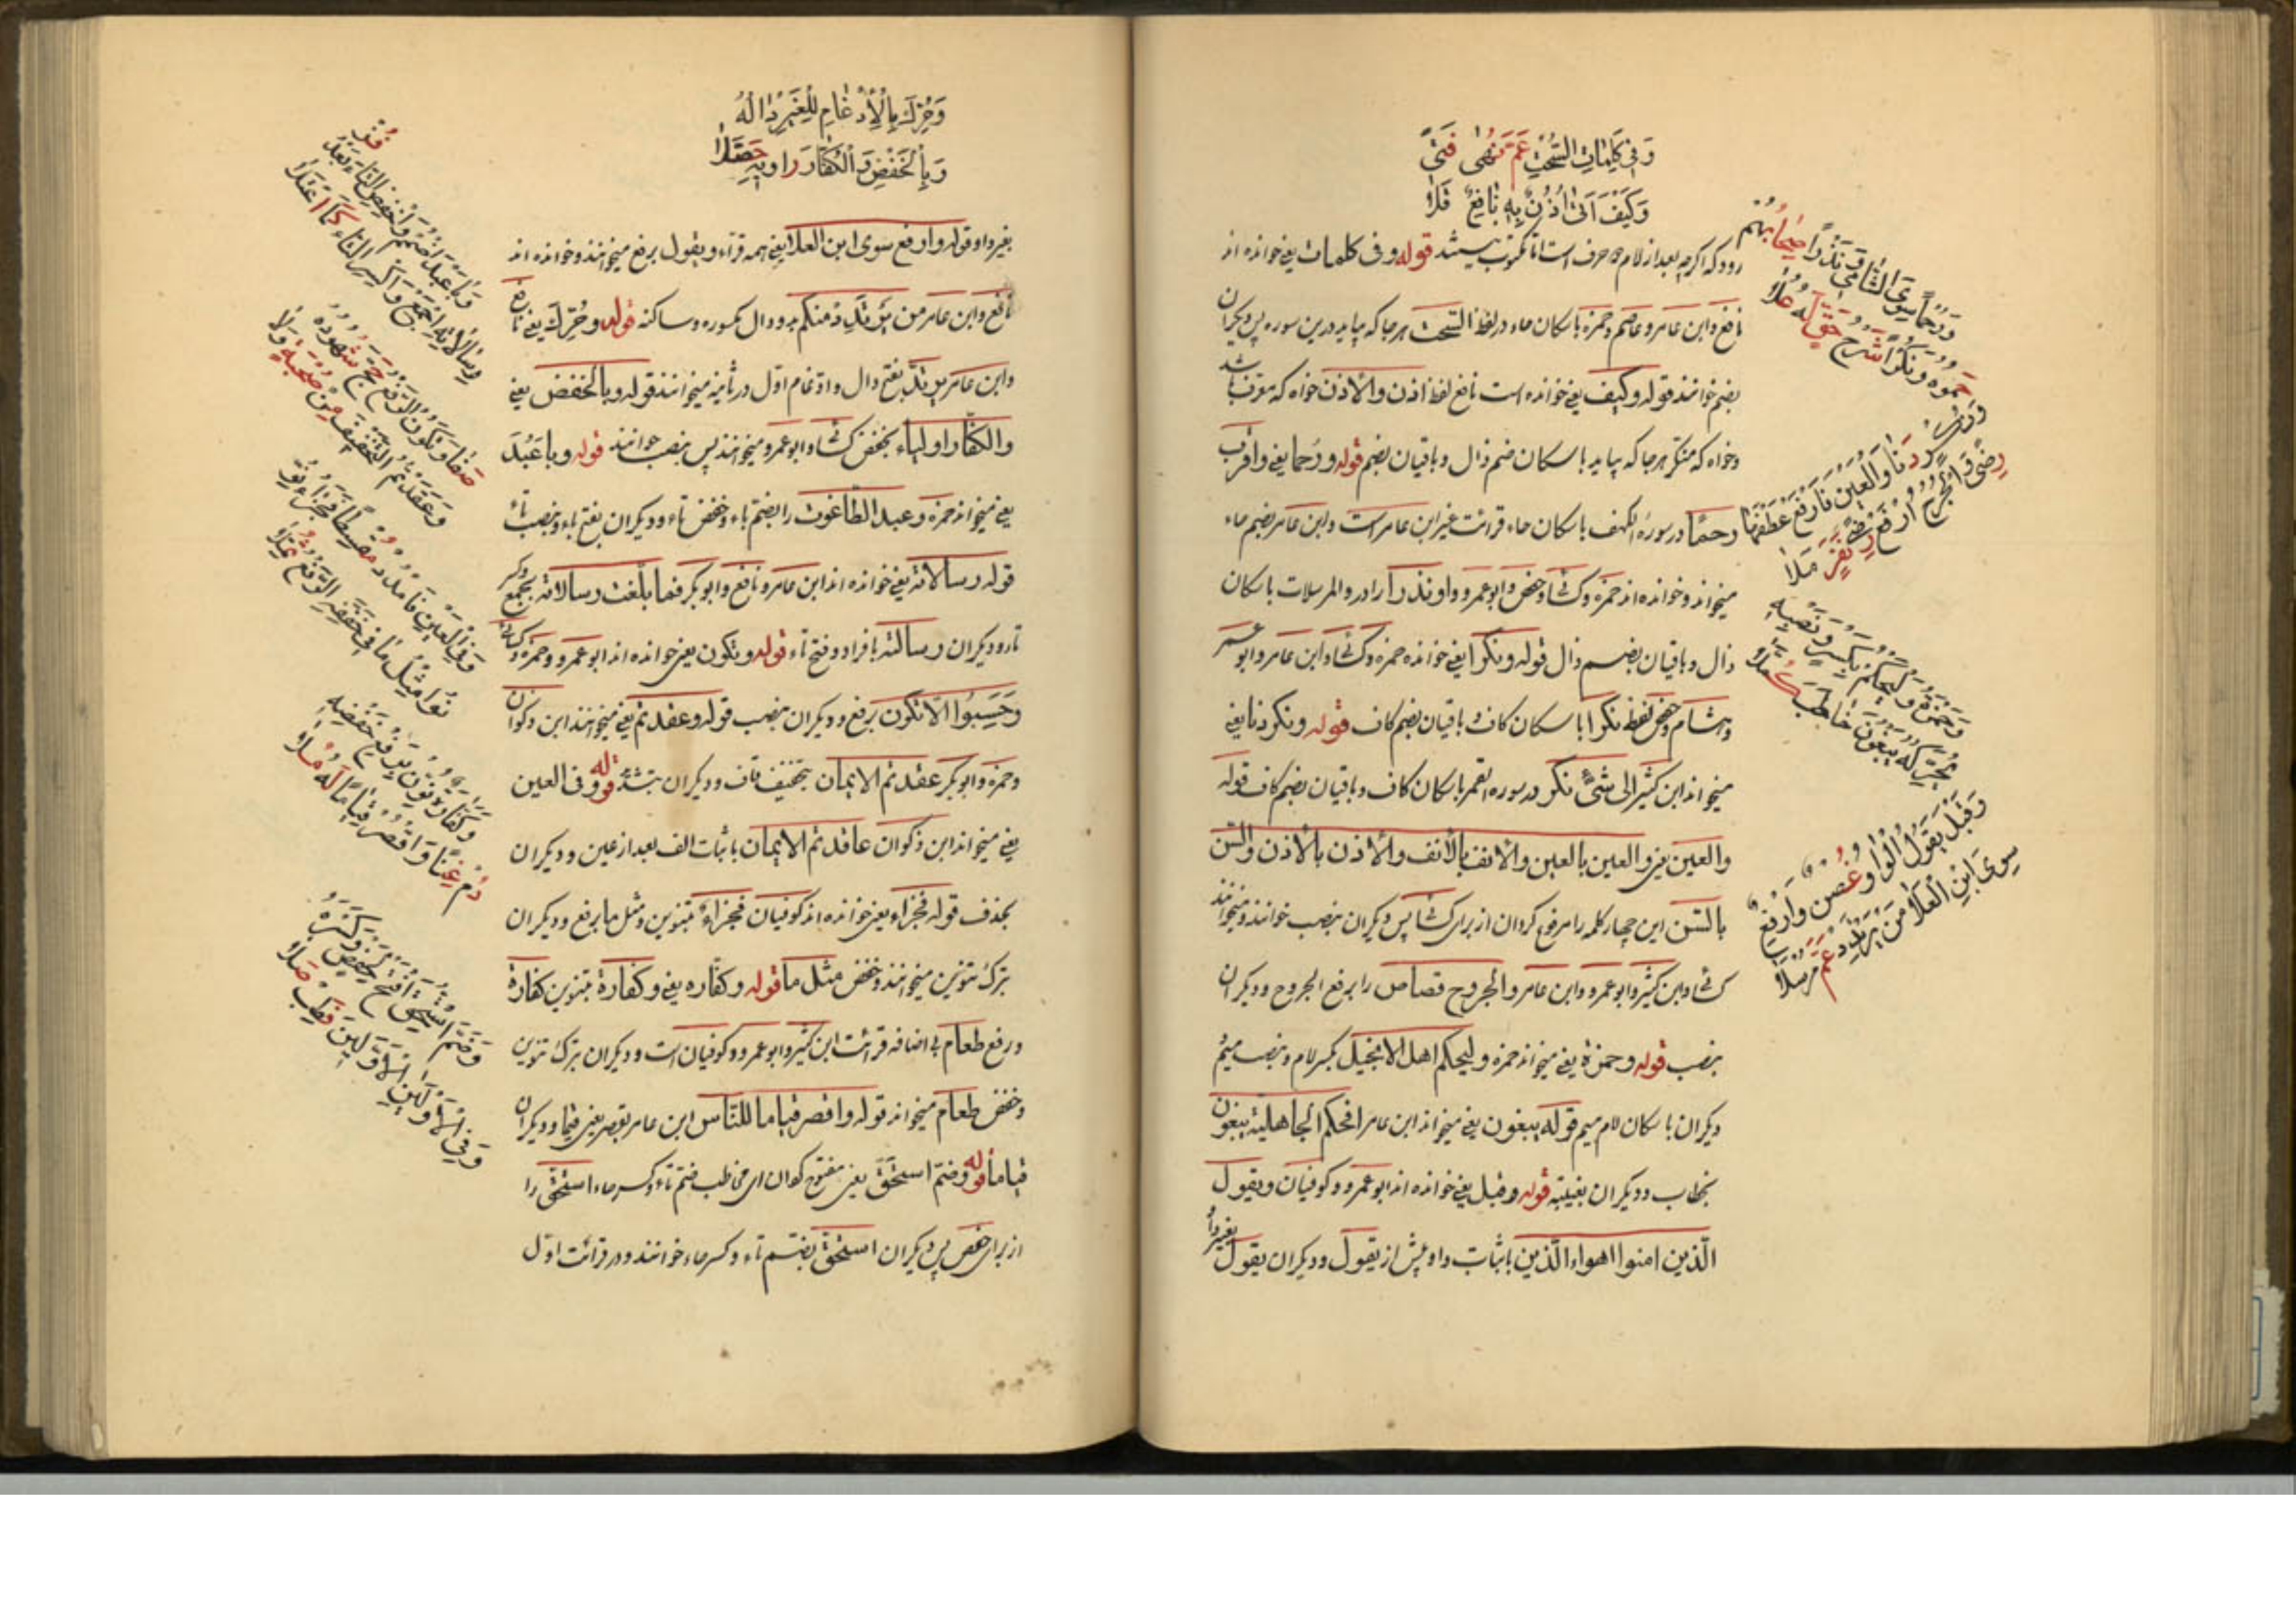 وَفِي كَلِمَاتِ السُّحْتِ عَمَّ نُهَى فَتًى
وَكَيْفَ أَتَى أُذْنٌ بِهِ نَافِعٌ تَلَا
رود که اکرچه بعد از لام حرف است اما مکتوب نیستند قوله وفی کلمات یعنی خوانده اند
نافع وابن عامر وعاصم وحمزه باسکان حاء در لفظ السّحت هرجا که بیاید درین سوره پس دیکران
بضم خوانند قوله وکیف یعنی خوانده است نافع لفظ اذن والاذن خواه که معرف باشد
وخواه که منکر هرجا که بیاید باسکان ضم ذال وباقیان بضم قوله ورحما یعنی واقرب
رحمًا در سورة الکهف باسکان حاء قرائت غیر ابن عامر است وابن عامر بضم حاء
میخواند وخوانده اند حمزه وکسائی وحفص وابوعمرو او نذرا را در والمرسلات باسکان
ذال وباقیان بضم ذال قوله ونکرا یعنی خوانده حمزه وکسائی وابن عامر وابوعمر
وهشام وحفص لفظ نکرا باسکان کاف وباقیان بضم کاف قوله ونکر دنا یعنی
میخواند ابن کثیر الی شیٔ نکر در سوره القمر باسکان کاف وباقیان بضم کاف قوله
والعین یعنی والعین بالعین والانف بالأنف والأذن بالأذن والسّن
بالسّن این چهار کلمه را مرفوع کردان از برای کسائی پس دیکران بنصب خوانند ومیخوانند
کسائی وابن کثیر وابوعمرو وابن عامر والجروح قصاص را برفع الجروح ودیکران
بنصب قوله وحمزة یعنی میخواند حمزه ولیحکم اهل الانجیل بکسر لام ونصب میم
دیکران باسکان لام میم قوله یبغون یعنی میخواند ابن عامر افحکم الجاهلیّة یبغون
بخطاب ودیکران بغیبته قوله وقبل یعنی خوانده اند ابوعمرو وکوفیان ویقول
الّذین امنوا اهواء الّذین باثبات واو پیش از یقول ودیکران یقول بغیر واو
وَرُحْمًا سِوَى الشَّامِي وَنُذْرًا صِحَابُهُمْ
حَمَوْهُ وَنُكْرًا شَرْعُ حَقٍّ لَهُ عُلَا
وَنُكْرٍ دَنَا وَالْعَيْنَ فَارْفَعْ وَعَطْفَهَا
رِضًى وَالْجُرُوحَ ارْفَعْ رِضَى نَفَرٍ مَلَا
وَحَمْزَةُ وَلْيَحْكُمْ بِكَسْرٍ وَنَصْبِهِ
يُحَرِّكُهُ يَبْغُونَ خَاطَبَ كُمَّلَا
وَقَبْلَ يَقُولُ الْوَاوُ غُصْنٌ وَارْفَعْ
سِوَى ابْنِ الْعَلَا مَنْ يَرْتَدِدْ عَمَّ مُرْسَلَا
وَحُرِّكَ بِالْإِدْغَامِ لِلْغَيْرِ دَالُهُ
وَبِالْخَفْضِ وَالْكُفَّارَ رَاوِيهِ حَصَّلَا
بغیر واو قوله وارفع سوی ابن العلا یعنی همه قراء ویقول برفع میخوانند وخوانده اند
نافع وابن عامر من یرتدد منکم بدو دال مکسوره وساکنه قوله وحُرّک یعنی
وابن عامر یرتدّ بفتح دال وادغام اوّل در ثانیه میخوانند قوله وبالخفض یعنی
والکفّار اولیاء بخفض کسائی وابوعمرو میخوانند پس بنصب خوانند قوله وبا عَبُدَ
یعنی میخواند حمزه وعبد الطّاغوت را بضم باء وخفض تاء ودیکران بفتح باء ونصب تاء
قوله رسالاته یعنی خوانده اند ابن عامر ونافع وابوبکر فما بلّغت رسالاته بجمع وکسر
تا ودیکران رسالته بافراد وفتح تاء قوله وتکون یعنی خوانده اند ابوعمرو وحمزه وکسائی
وَحَسِبُوا الّا تکون برفع ودیکران بنصب قوله وعقدتم یعنی میخوانند ابن ذکوان
وحمزه وابوبکر عقدتم الایمان بتخفیف قاف ودیکران بتشدید قوله وفی العین
یعنی میخواند ابن ذکوان عاقدتم الایمان باثبات الف بعد از عین ودیکران
بحذف قوله فجزاء یعنی خوانده اند کوفیان فجزاءٌ بتنوین ومثل ما برفع ودیکران
بترک تنوین میخوانند وخفض مثل ما قوله وکفّاره یعنی وکفّارةٌ بتنوین کفارة
ورفع طعام بی اضافه قرائت ابن کثیر وابوعمرو وکوفیان است ودیکران بترک تنوین
وخفض طعام میخواند قوله واقصر قیاما للنّاس ابن عامر بقصر یعنی قیما ودیکران
قیاماً قوله وضمّ استحقّ یعنی مفتوح کردان ای مخاطب ضم تاء وکسر حاء استحقّ را
از برای حفص پس دیکران استحقّ بضم تاء وکسر حاء خوانند ودر قرائت اوّل
وَبَا عَبُدَ اضْمُمْ وَاخْفِضِ التَّاءَ بَعْدُ فُزْ
رِسَالَاتِهِ اجْمَعْ وَاكْسِرِ التَّاءَ كَمَا اعْتَلَا
صَفَا وَتَكُونُ الرَّفْعُ حَجَّ شُهُودُهُ
وَعَقَّدْتُمُ التَّخْفِيفُ مِنْ صُحْبَةٍ وَلَا
وَفِي الْعَيْنِ فَامْدُدْ مُقْسِطًا فَجَزَاءٌ نَوِّ
نُوا مِثْلُ مَا فِي خَفْضِهِ الرَّفْعُ ثُمَّلَا
وَكَفَّارَةٌ نَوِّنْ بِرَفْعِ خَفْضِهِ
دُمْ غِنًى وَاقْصُرْ قِيَامًا لَهُ مُلَا
وَضَمَّ اسْتُحِقَّ افْتَحْ لِحَفْصٍ وَكَسْرَهُ
وَفِي الْأَوْلَيَانِ الْأَوَّلِينَ فَطِبْ صِلَا